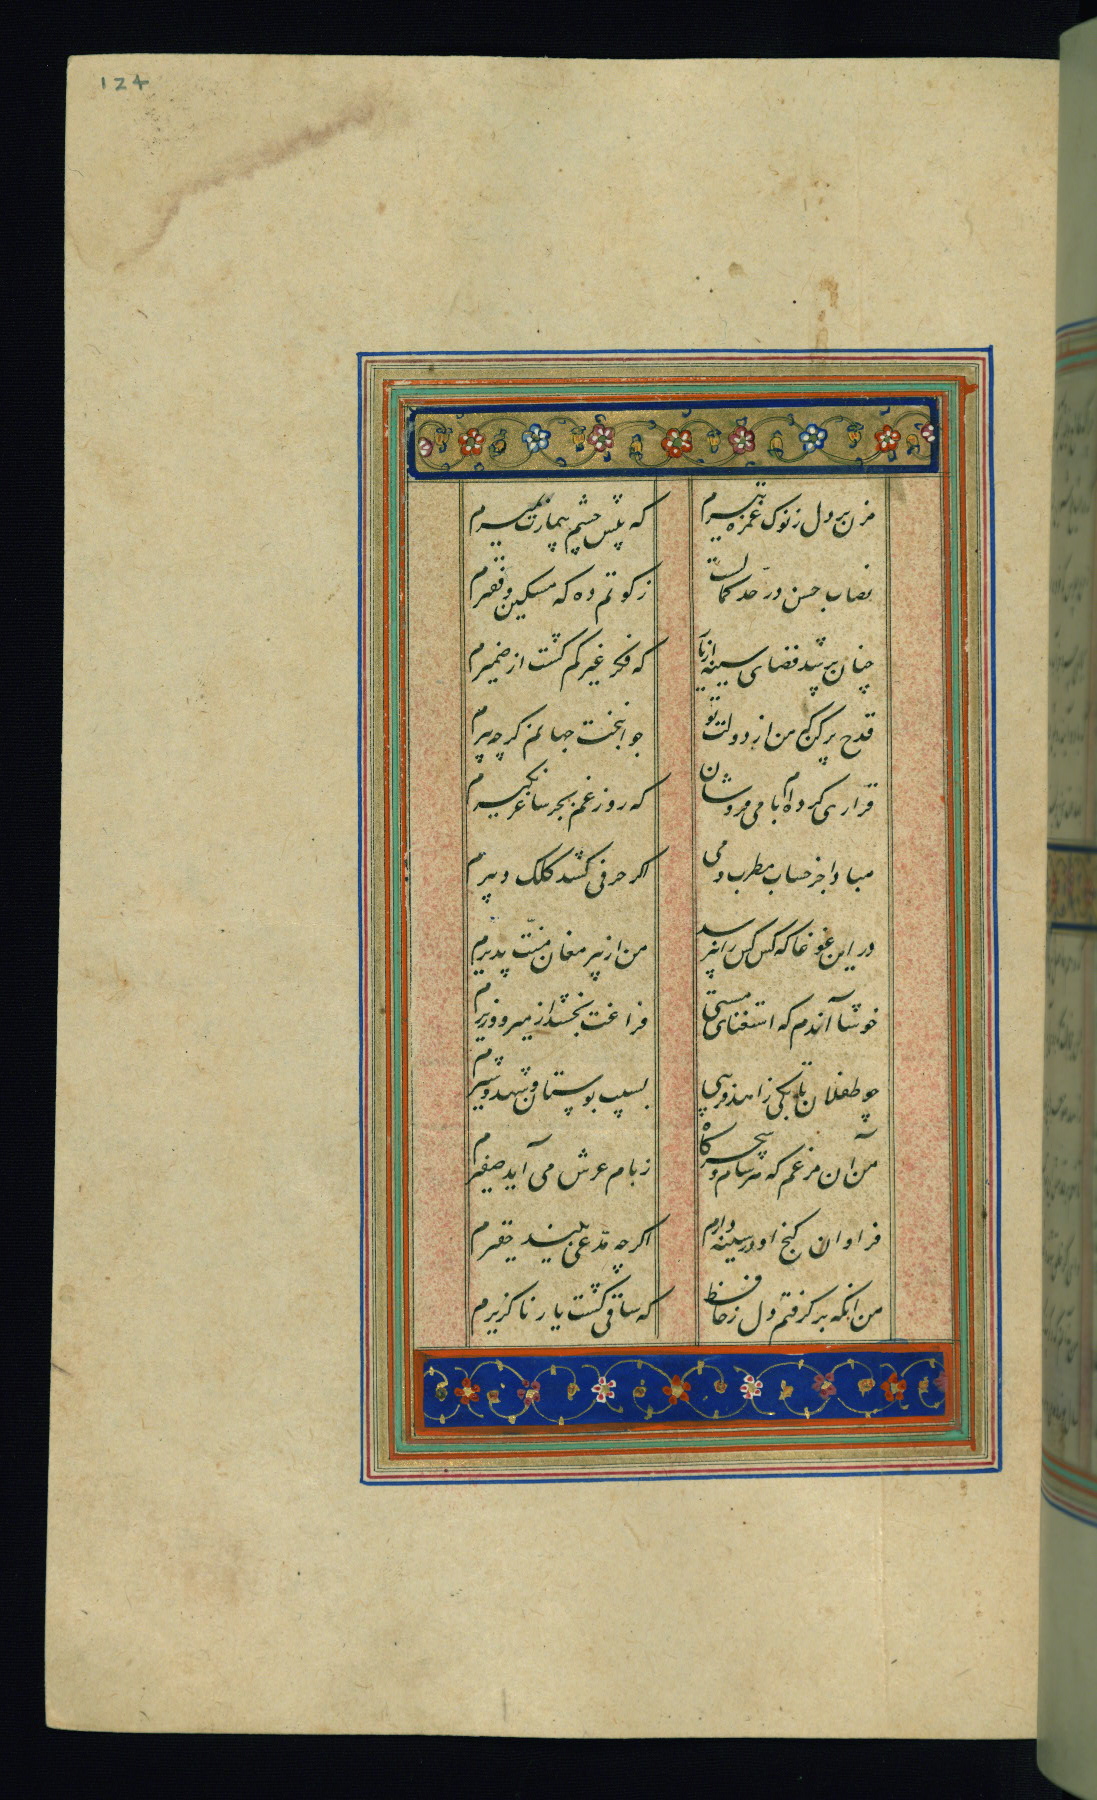 124
مزن بر دل ز نوک غمزه تیرم
که پیش چشم بیمارت بمیرم
نصاب حسن در حد کمالست
زکوتم ده که مسکین و فقیرم
چنان پر شد فضای سینه از یار
که فکر غیر کم گشت از ضمیرم
قدح پر کن که من از دولت تو
جوانبخت جهانم گر چه پیرم
قراری کرده‌ام با می فروشان
که روز غم بجز ساغر نگیرم
مبادا جز حساب مطرب و می
اگر حرفی کشد کلک دبیرم
در این غوغا که کس کس را نپرسد
من از پیر مغان منت پذیرم
خوشا آندم که استغنای مستی
فراغت بخشد از میر و وزیرم
چو طفلان تا بکی زاهد فریبی
بسیب بوستان و شهد و شیرم
من آن مرغم که هر شام و سحرگاه
ز بام عرش می آید صفیرم
فراوان گنج او در سینه دارم
اگر چه مدعی بیند حقیرم
من آنگه بر گرفتم دل ز حافظ
که ساقی گشت یار ناگزیرم